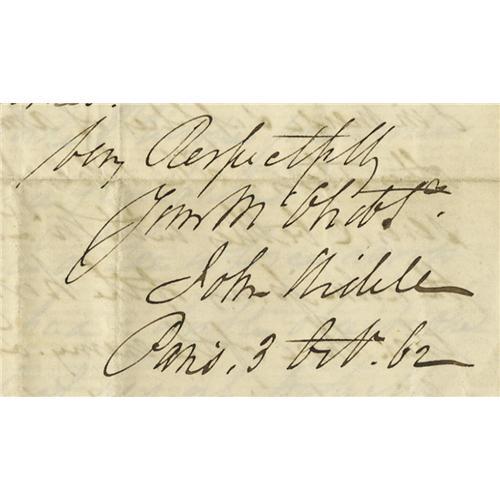 Very Respectfully
Your Mo Obdt Sr.
John Slidell
Paris, 3 Oct. 62